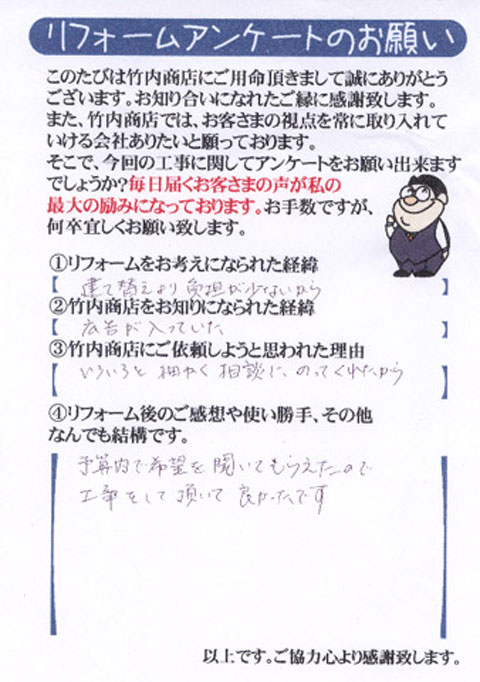 リフォームアンケートのお願い
このたびは竹内商店にご用命頂きまして誠にありがとう
ございます。お知り合いになれたご縁に感謝致します。
また、竹内商店では、お客さまの視点を常に取り入れて
いける会社ありたいと願っております。
そこで、今回の工事に関してアンケートをお願い出来ます
でしょうか?毎日届くお客さまの声が私の
最大の励みになっております。お手数ですが、
何卒宜しくお願い致します。
①リフォームをお考えになられた経緯
【建て替えより負担が少ないから】
②竹内商店をお知りになられた経緯
【広告が入っていた】
③竹内商店にご依頼しようと思われた理由
【いろいろと細やく相談に、のってくれたから】
④リフォーム後のご感想や使い勝手、その他
なんでも結構です。
予算内で希望を聞いてもらえたので
工事をして頂いて良かったです
以上です。ご協力心より感謝致します。